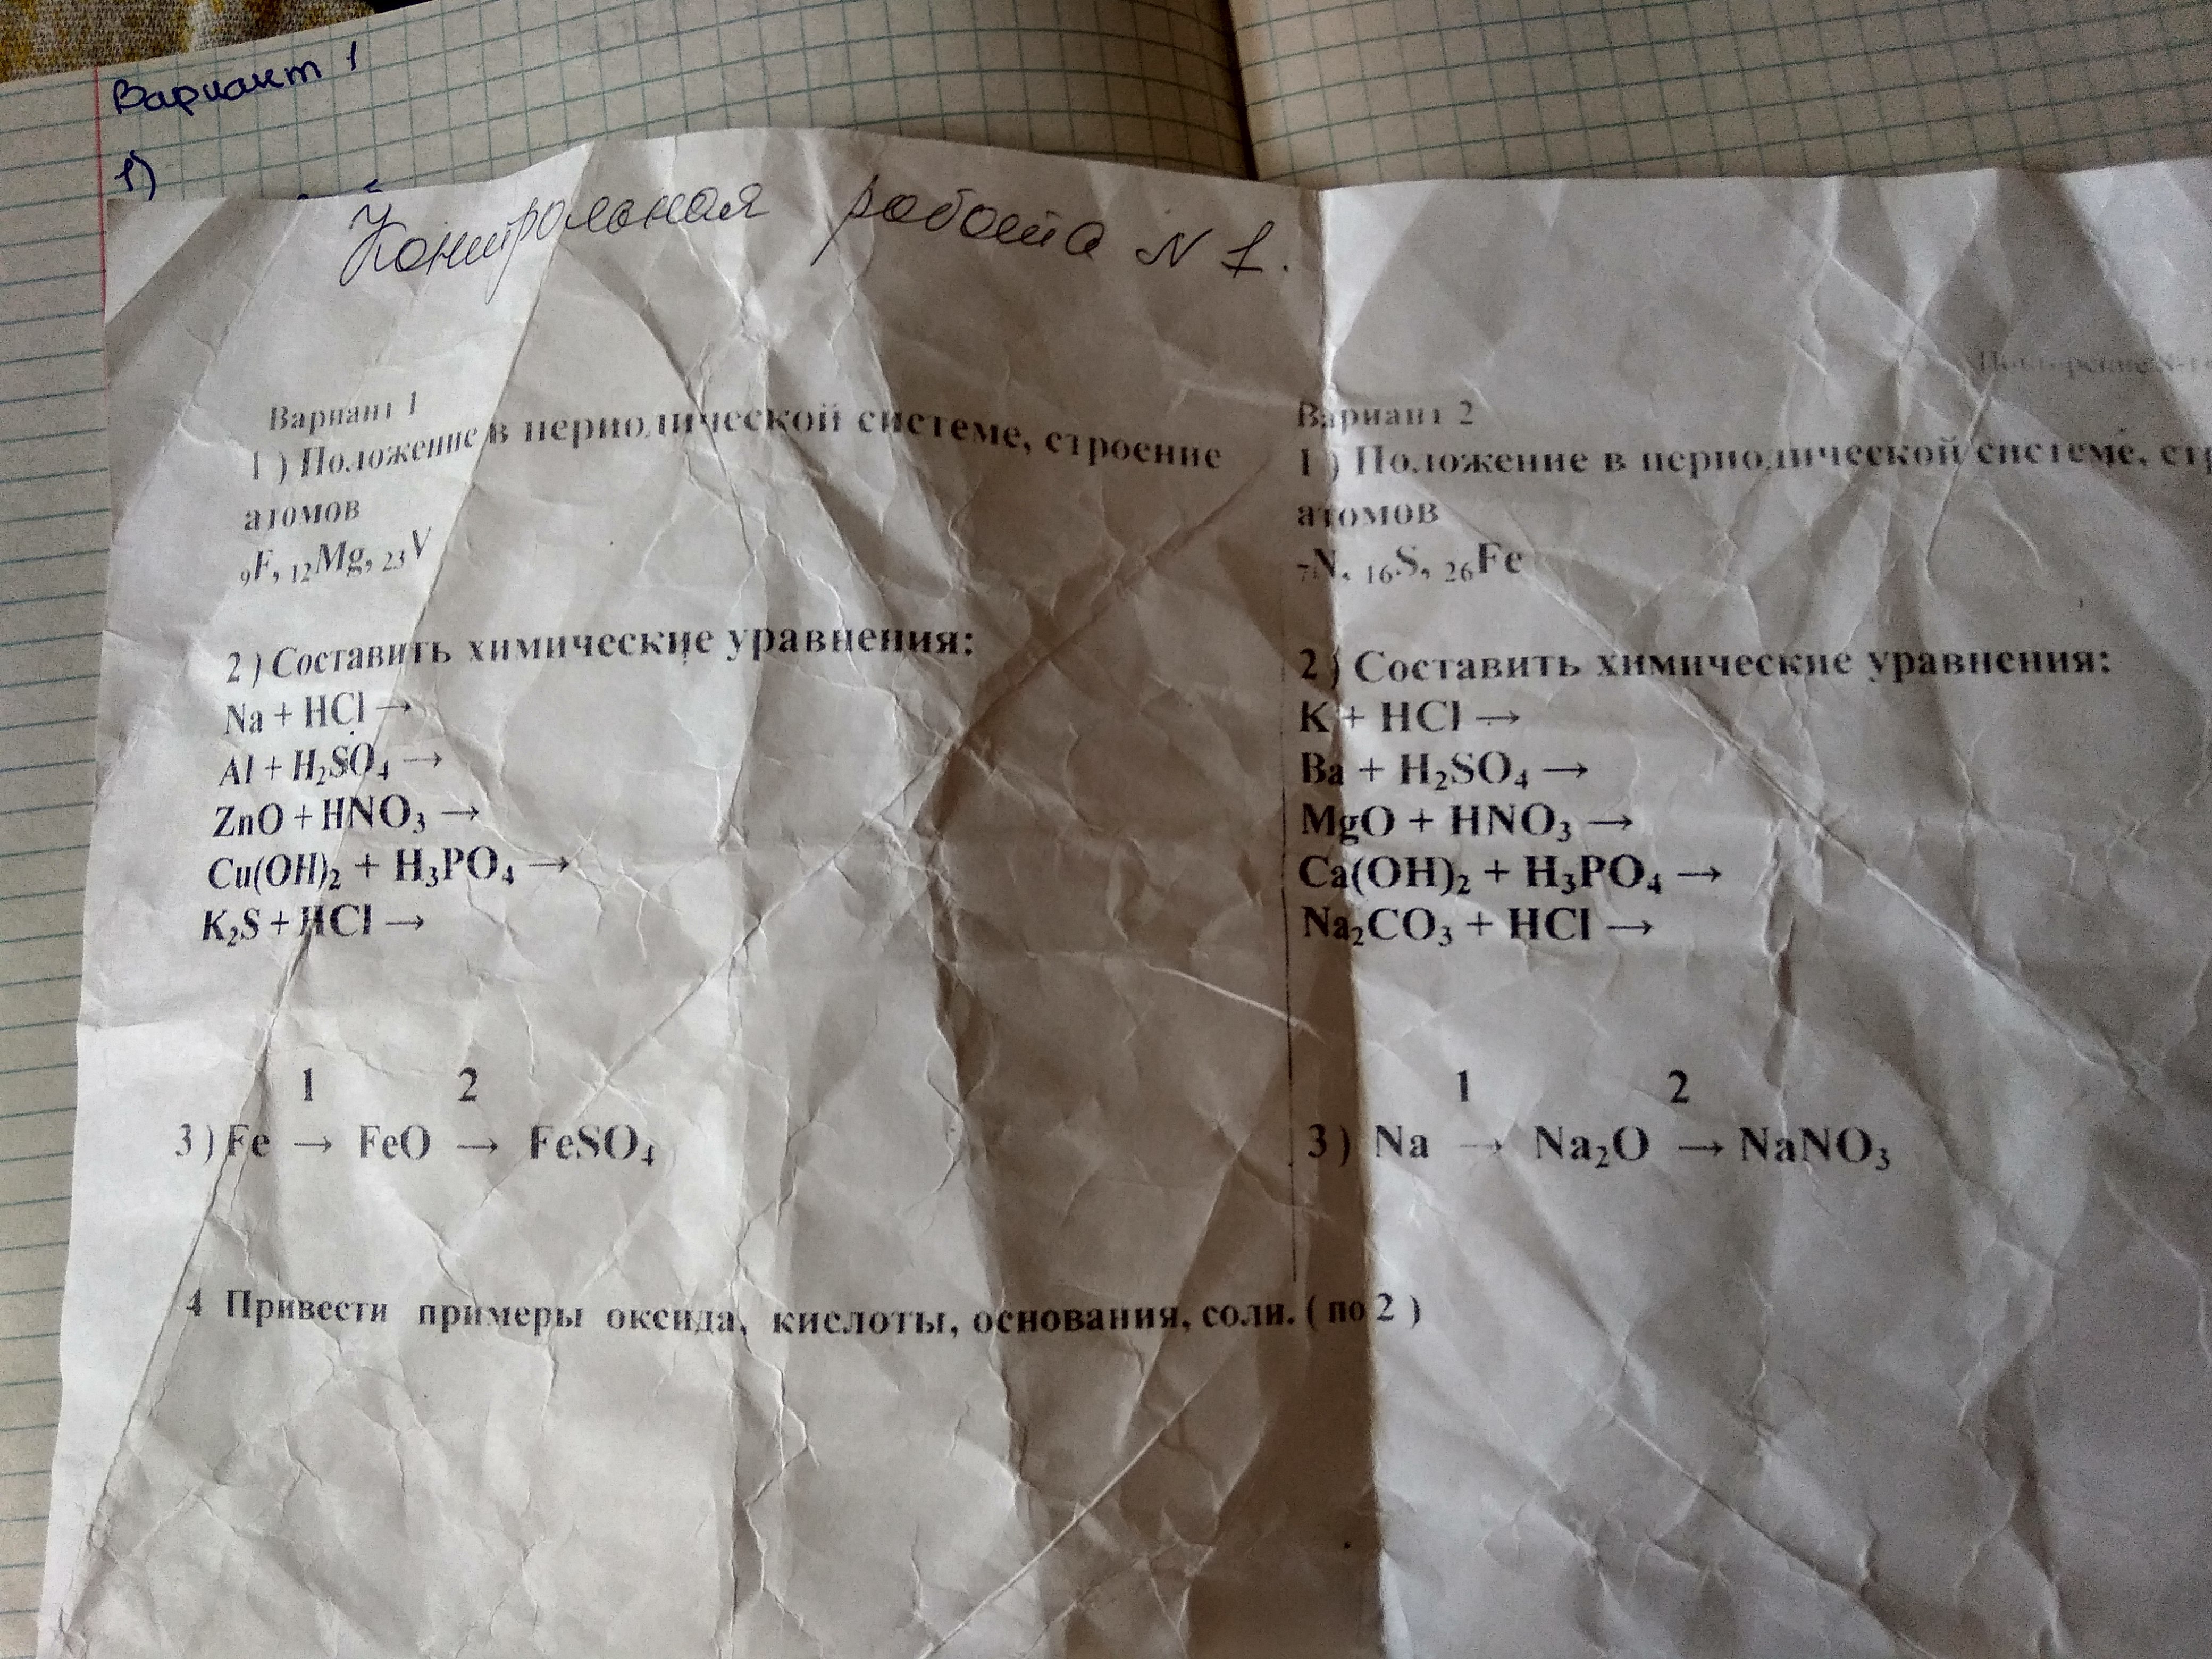 Вариант 1
1)
Контрольная работа N 1.
Вариант 1
1 ) Положение в периодической системе, строение
атомов
₉F, ₁₂Mg, ₂₃V
2 ) Составить химические уравнения:
Na + HCl →
Al + H₂SO₄ →
ZnO + HNO₃ →
Cu(OH)₂ + H₃PO₄ →
K₂S + HCl →
1 2
3 ) Fe → FeO → FeSO₄
Вариант 2
1 ) Положение в периодической системе,
атомов
₇N, ₁₆S, ₂₆Fe
2 ) Составить химические уравнения:
K + HCl →
Ba + H₂SO₄ →
MgO + HNO₃ →
Ca(OH)₂ + H₃PO₄ →
Na₂CO₃ + HCl →
1 2
3 ) Na → Na₂O → NaNO₃
4 Привести примеры оксида, кислоты, основания, соли. ( по 2 )